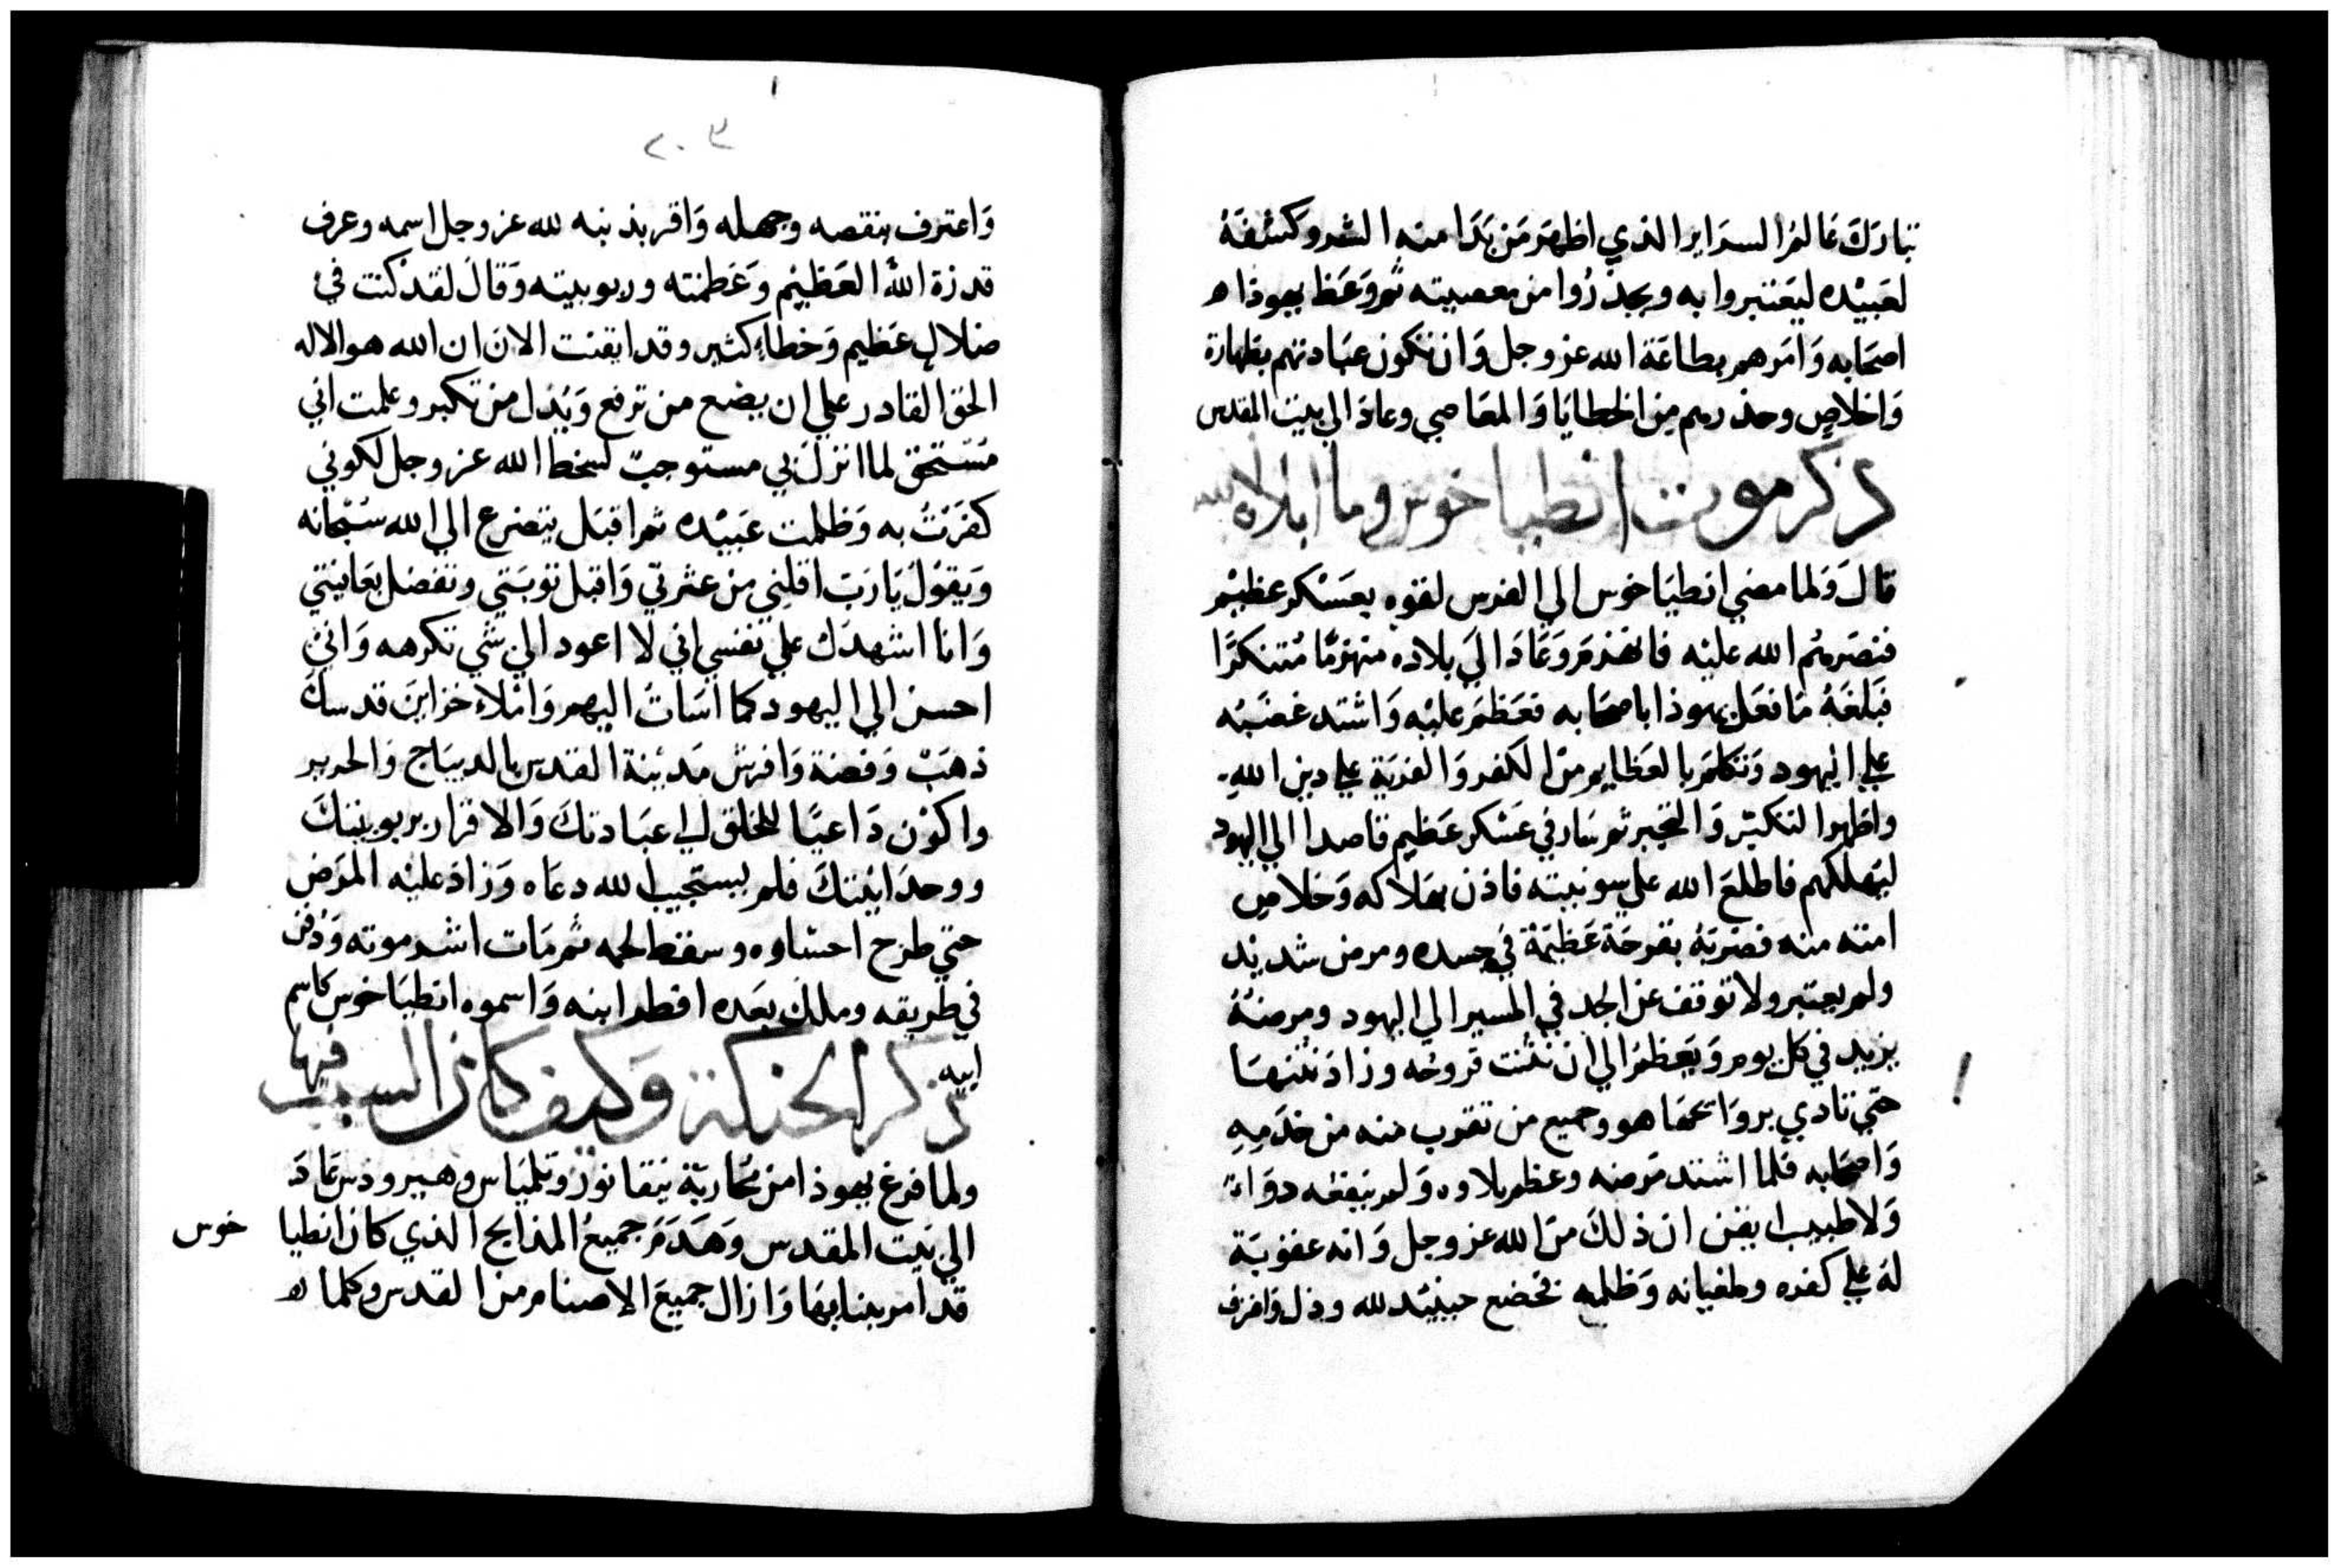 تبارَكَ عَالمُ السرَاير الذي اظهَر مَن بَدَا منه الشر وكشفَهُ
لعَبيْده ليَعْتبروا به ويحذرُوا من معصيته ثم وَعَظ يهوذا ه
اصحَابه وَامَرهم بطاعَة الله عز وجل وَان تكون عبَادتهم بطهارة
وَاخلاصٍ وحذرهم من الخطايَا وَالمعَاصي وعادَ الي بيْت المقدس
ذكر موت انطياخوس وما ابلاه الله
قالَ وَلما مضي انطيَاخوس الي الفرس لقوه بعَسْكر عظيْم
فنصَرهُم الله عليْه فانهزمَ وَعَادَ الَي بلاده منهزمًا مُتنكرًا
فبَلغَهُ مَا فعَل يهوذا باصحَابه فعَظمَ عليْه وَاشتد غضَبُه
علي اليْهود وَتكلمَ بالعَظايم مَن الكفر وَالفريَة علي دين الله
واظهرا لتكبّر وَالتجبر ثم سَار في عَسْكر عَظيم قاصدا الي اليهود
ليَهلكهم فاطلعَ الله علي سو نيته فاذن بهَلاكه وَخلاص
امته منه فضرَبَهُ بقرحَة عَظيمَة في جسده ومرض شديْد
ولم يعتبر ولا توقف عن الجد في المسير الي اليهود ومرضهُ
يزيد في كل يوم وَيَعظم الي ان نتْنت قروحُه وزادَ نتنهَا
حتي تاذي بروَايحهَا هو وجميع من تقرب منه من خدَمِهِ
وَاصحَابه فلما اشتد مَرضه وعظم بلاوه وَلم ينفعه دوَاء
وَلا طبيب ايقن ان ذلكَ مَن الله عز وجل وَانه عقوبَة
لهُ علي كفره وطغيانه وَظلمه فخضع حينيْد لله وذل وَاقرف
٢٠٣
وَاعترف بنقصه وجهله وَاقر بذنبه لله عز وجل اسمه وعرف
قدرة اللهُ العَظيْم وَعَظمته وربوبيته وَقالَ لقد كنت فيْ
ضلالٍ عَظيم وَخطاءٍ كثير وقد ايقنت الان ان الله هو الاله
الحق القادر علي ان يضع من ترفع وَيُذل من تكبر وعلمت اني
مُسْتحق لما انزلَ بي مستوجبٌ لسخط الله عز وجل لكوني
كفَرْتُ به وَظلمت عَبيْده ثم اقبَل يتضرع الي الله سُبْحانه
وَيقوُل يَا رَب اقلِني من عثرتي وَاقبل توبَتي وتفضل بعَافيتي
وَانا اشهدَك علي نفسي اني لا اعود الي شي تكرهه وَانيْ
احسن الي اليهود كما اسَاتُ اليهم وَاملاء خزاين قدسكَ
ذهَبْ وَفضة وَافرش مَديْنة القدس بالديبَاج وَالحرير
واكوْن دَاعيًا للخلق الي عبَادتكَ وَالاقرار بربوبيتكَ
ووحدَانيْتكَ فلم يستجيب الله دعَاه وَزادَ عليْه المرَض
حتي طرح احشاوه وسقط لحمه ثم مَات اشر موته وَدُفن
في طريقه وملكَ بعَده افطر ابنه وَاسموه انطيَاخوس كاسم
ابيه
ذكر الحنكة وكيف كان السبب فيها
ولما فرغ يهوذا من مُحاربَة نيقانور وتلميَاس وهيرودس عَادَ
الي بيْت المقدس وَهَدَمَ جميعُ المذابح الذي كان انطيا خوس
قد امر ببنايهَا وَازال جميعَ الاصنام من القدس وكلما له